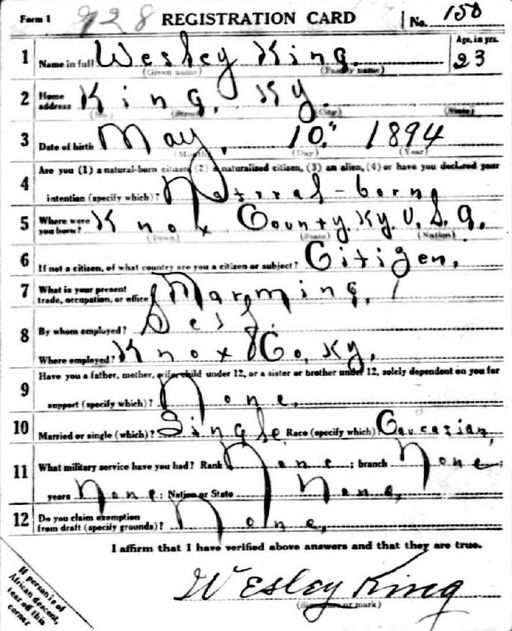 Form 1 928 REGISTRATION CARD No. 150
1 Name in full Wesley King. Age, in yrs. 23
(Given name) (Family name)
2 Home address King, Ky.
(No.) (Street) (City) (State)
3 Date of birth May, 10" 1894
(Month) (Day) (Year)
Are you (1) a natural-born citizen, (2) a naturalized citizen, (3) an alien, (4) or have you declared your
4 intention (specify which)? Natrral-born
5 Where were you born? Knox County, Ky. U.S.A.
(Town) (State) (Nation)
6 If not a citizen, of what country are you a citizen or subject? Citizen.
7 What is your present trade, occupation, or office?
8 By whom employed? Self.
Where employed? Knox Co, Ky.
Have you a father, mother, wife, child under 12, or a sister or brother under 12, solely dependent on you for
9 support (specify which)? None.
10 Married or single (which)? Single Race (specify which) Caucasian
11 What military service have you had? Rank None ; branch None ;
years None ; Nation or State None,
12 Do you claim exemption from draft (specify grounds)? None,
I affirm that I have verified above answers and that they are true.
Wesley King
(Signature or mark)
If person is of
African descent,
tear off this
corner.